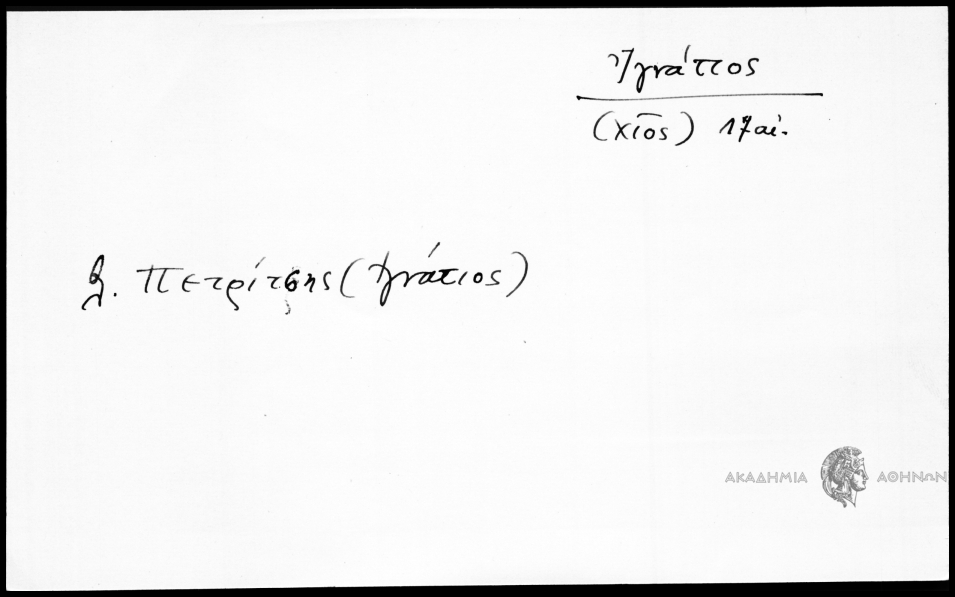 Ἰγνάτιος
(χῖος) 17 αἰ.
β. Πετρίτσης (Ἰγνάτιος)
ΑΚΑΔΗΜΙΑ ΑΘΗΝΩΝ